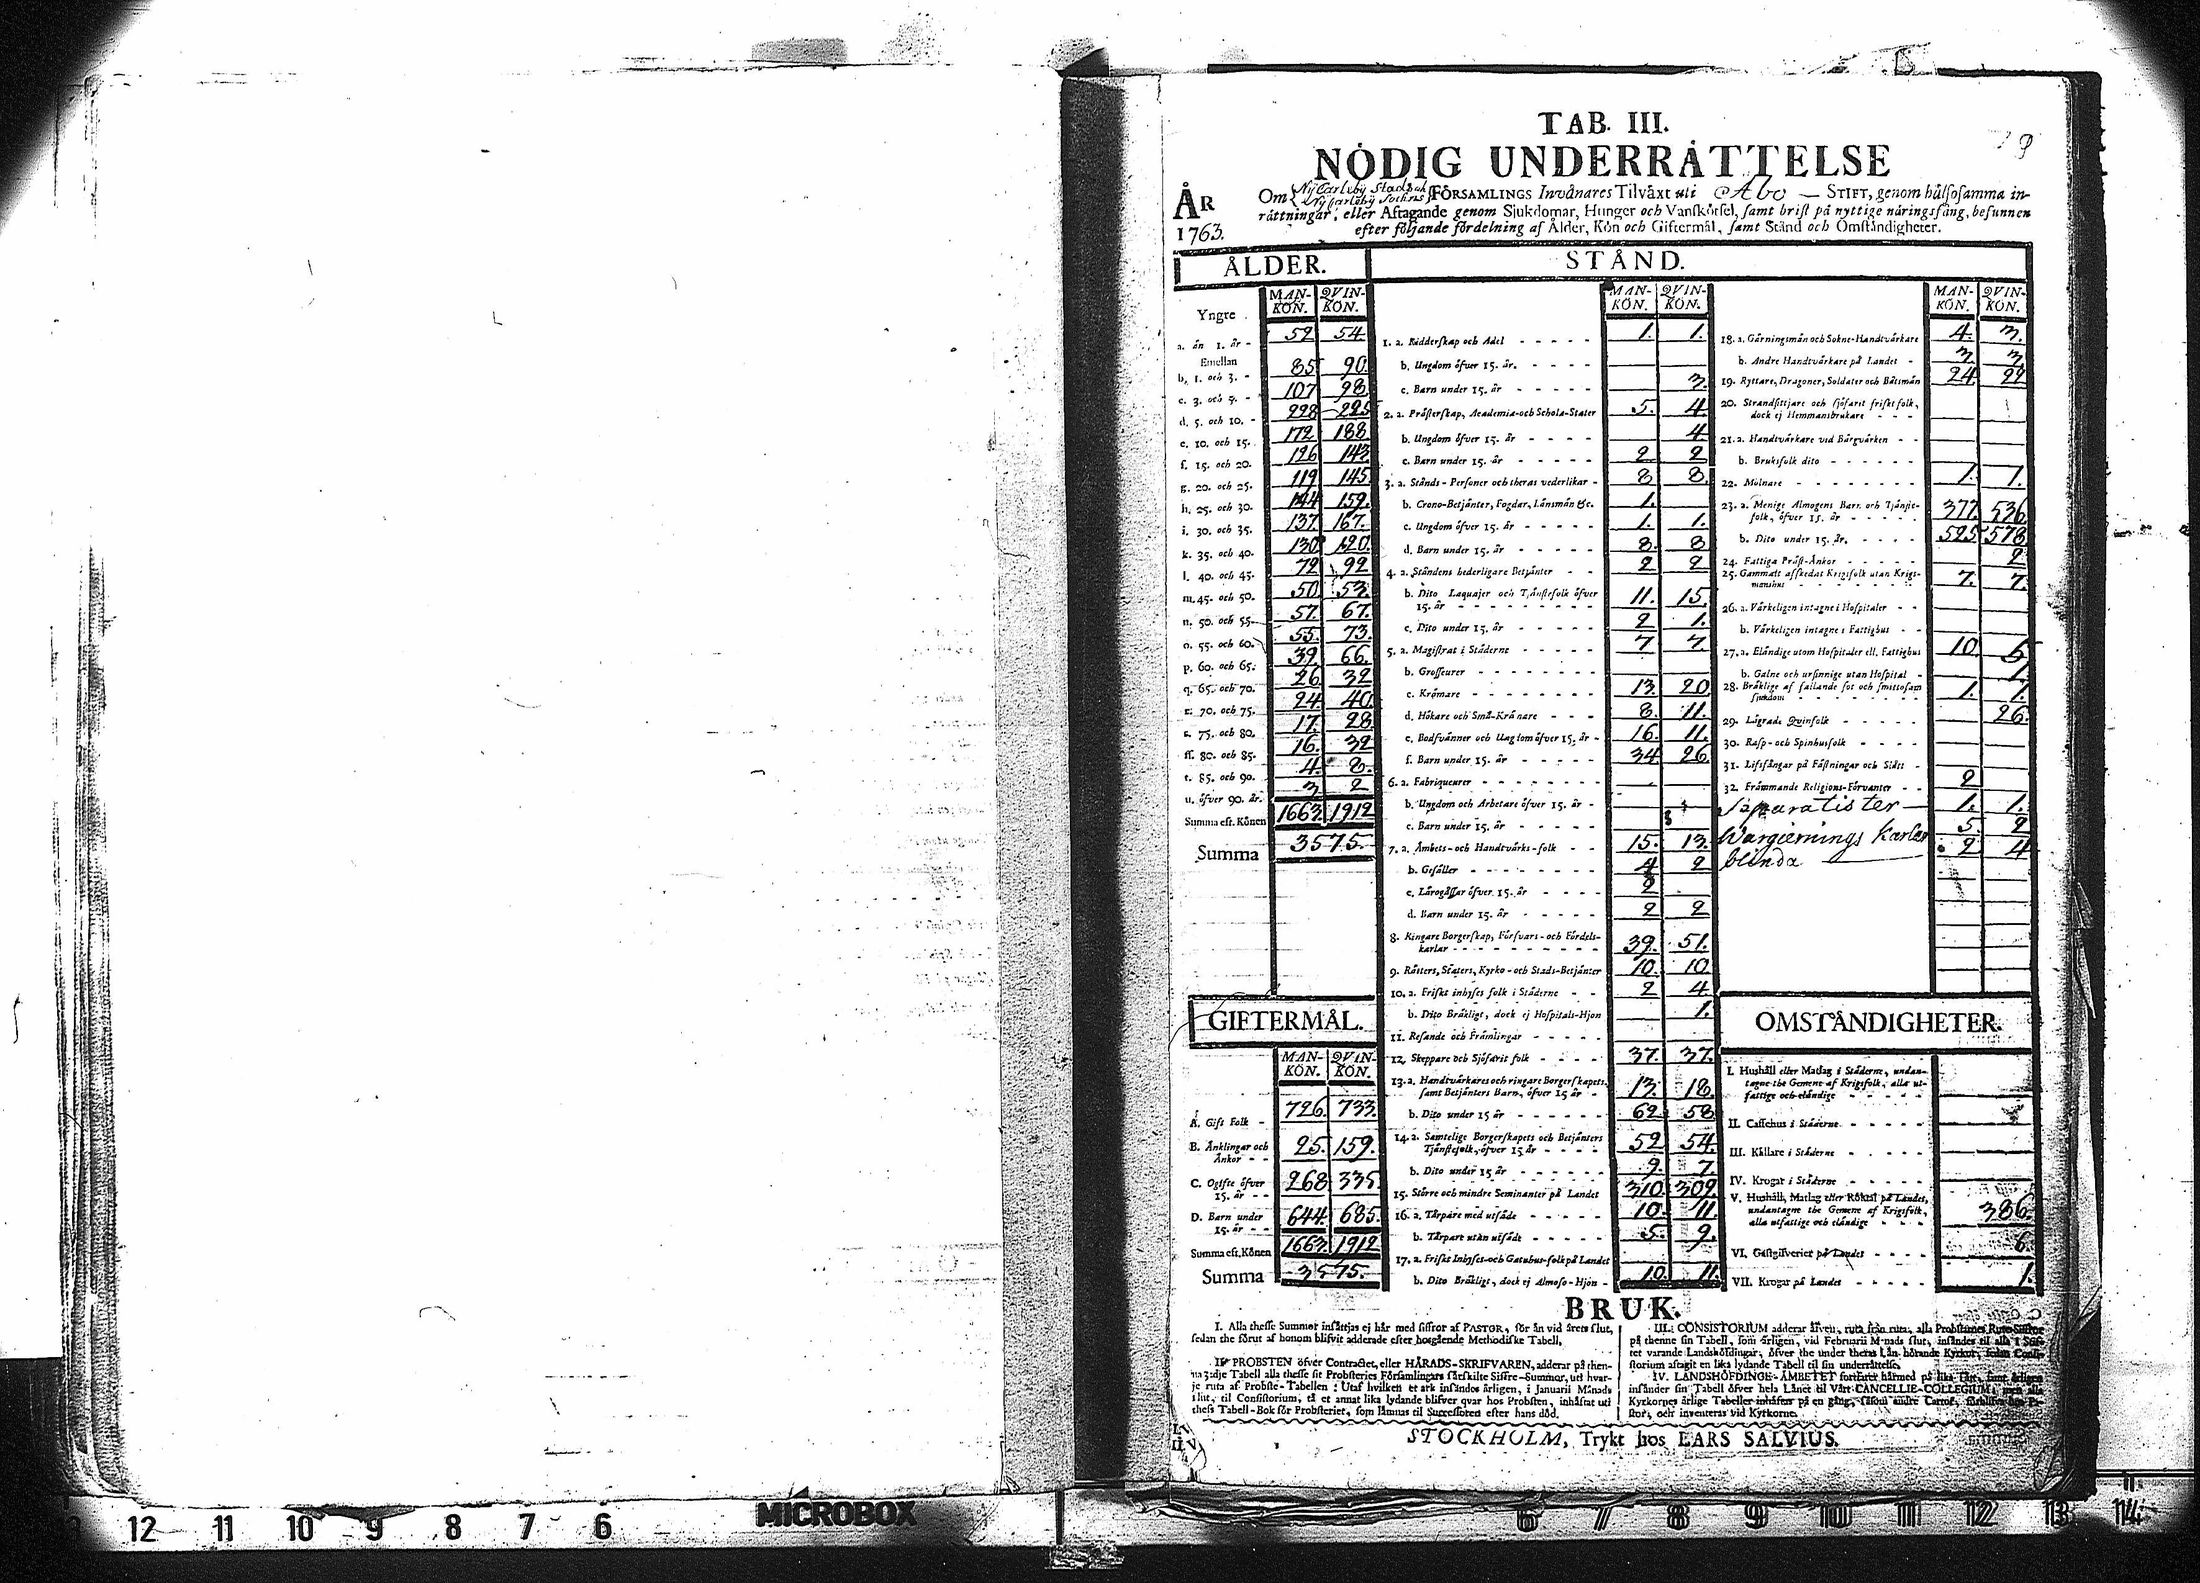 TAB. III.
NÖDIG UNDERRÄTTELSE
ÅR 1763.
Om Ny Carleby Stads och Ny Carleby Sochns FÖRSAMLINGS Invånares Tilväxt uti Åbo — STIFT, genom hälsosamma in-
rättningar, eller Aftagande genom Sjukdomar, Hunger och Vanskötsel, samt brist på nyttige näringsfång, befunnen
efter följande fördelning af Ålder, Kön och Giftermål, samt Stånd och Omständigheter.
ÅLDER.
MAN-KÖN. QVIN-KÖN.
Yngre
a. än 1. år - 52 54
Emellan
b. 1. och 3. - 85 90
c. 3. och 5. - 107 98
d. 5. och 10. - 228 225
e. 10. och 15. 172 188
f. 15. och 20. 126 143
g. 20. och 25. 119 145
h. 25. och 30. 144 159
i. 30. och 35. 137 167
k. 35. och 40. 130 120
l. 40. och 45. 72 92
m. 45. och 50. 50 53
n. 50. och 55. 57 67
o. 55. och 60. 55 73
p. 60. och 65. 39 66
q. 65. och 70. 26 32
r. 70. och 75. 24 40
s. 75. och 80. 17 28
ff. 80. och 85. 16 32
t. 85. och 90. 4 8
u. öfver 90. år. 3 2
Summa eft. Könen 1663 1912
Summa 3575.
GIFTERMÅL.
MAN-KÖN. QVIN-KÖN.
A. Gift Folk - 726 733
B. Änklingar och
Änkor - - 25. 159.
C. Ogifte öfver
15. år - - 268 335
D. Barn under
15. år - - 644 685.
Summa eft. Könen 1663 1912
Summa 3575.
STÅND.
MAN-KÖN. QVIN-KÖN.
1. a. Ridderskap och Adel 1. 1.
b. Ungdom öfver 15. år.
c. Barn under 15. år 3.
2. a. Prästerskap, Academia- och Schola-Stater 5. 4
b. Ungdom öfver 15. år 4.
c. Barn under 15. år 2 2
3. a. Stånds-Personer och theras vederlikar 8 8
b. Crono-Betjänter, Fogdar, Länsmän &c. 1.
c. Ungdom öfver 15. år 1. 1.
d. Barn under 15. år 8. 8
4. a. Ståndens hederligare Betjänter 2 2
b. Dito Laquajer och Tjänstefolk öfver
15. år 11. 15.
c. Dito under 15. år 2 1.
5. a. Magistrat i Städerne 7 7
b. Grosseurer
c. Krämare 13 20
d. Hökare och Små-Krämare 8. 11.
e. Bodsvänner och Ungdom öfver 15. år 16. 11.
f. Barn under 15. år 34 26
6. a. Fabriqueurer
b. Ungdom och Arbetare öfver 15. år
c. Barn under 15. år
7. a. Ämbets- och Handtvärks-folk 15. 13.
b. Gesäller 4 2
c. Lärogåssar öfver 15. år 2
d. Barn under 15. år 2 2
8. Ringare Borgerskap, Försvars- och Fördels-
karlar 39. 51.
9. Rätters, Staters, Kyrko- och Stads-Betjänter 10. 10
10. a. Friskt inhyses folk i Städerne 2 4
b. Dito Bräkligt, dock ej Hospitals-Hjon 1.
11. Resande och Främlingar
12. Skeppare och Sjöfarit folk 37. 37.
13. a. Handtvärkares och ringare Borgerskapets,
samt Betjänters Barn, öfver 15 år 13. 18.
b. Dito under 15 år 62 58
14. a. Samtelige Borgerskapets och Betjänters
Tjänstefolk, öfver 15 år 52 54.
b. Dito under 15 år 9. 7.
15. Större och mindre Hemmanter på Landet 310. 309.
16. a. Tårpare med utsäde 10. 11.
b. Tårpare utan utsäde 5. 9.
17. a. Friskt Inhyses- och Gatuhus-folk på Landet
b. Dito Bräkligt, dock ej Almoso-Hjon 10. 11.
MAN-KÖN. QVIN-KÖN.
18. a. Gärningsmän och Sokne-Handtvärkare 4. 3.
b. Andre Handtvärkare på Landet 3. 3.
19. Ryttare, Dragoner, Soldater och Båtsmän 24. 22
20. Strandsittjare och sjöfarit friskt folk,
dock ej Hemmansbrukare
21. a. Handtvärkare vid Bärgvärken
b. Bruksfolk dito
22. Mölnare 1. 1.
23. a. Menige Almogens Barn och Tjänste-
folk, öfver 15. år 377. 536.
b. Dito under 15. år. 525 578
24. Fattiga Präst-Änkor 2
25. Gammalt afskedat Krigsfolk utan Krigs-
manshus 7. 7.
26. a. Värkeligen intagne i Hospitaler
b. Värkeligen intagne i Fattighus
27. a. Eländige utom Hospitaler ell. Fattighus 10. 5
b. Galne och ursinnige utan Hospital 1
28. Bräklige af fallande sot och smittosam
sjukdom 1. 1.
29. Lägrade Qvinfolk 26.
30. Rasp- och Spinhusfolk
31. Lifsfångar på Fästningar och Slått
32. Främmande Religions-Förvanter 2
Separatister 1. 1.
Wargierings Karlar 5. 2
blinda 2 4
OMSTÄNDIGHETER.
I. Hushåll eller Matlag i Städerne, undan-
tagne the Gemene af Krigsfolk, alla ut-
fattige och eländige
II. Caffehus i Städerne
III. Källare i Städerne
IV. Krogar i Städerne
V. Hushåll, Matlag eller Röktal på Landet,
undantagne the Gemene af Krigsfolk,
alla utfattige och eländige 386.
VI. Gästgifverier på Landet 6.
VII. Krogar på Landet 1.
BRUK.
I. Alla thesse Summor insättjas ej här med siffror af PASTOR, för än vid årets slut,
sedan the förut af honom blifvit adderade efter hosgående Methodiske Tabell,
II. PROBSTEN öfver Contractet, eller HÄRADS-SKRIFVAREN, adderar på then-
na 3:dje Tabell alla thesse sit Probsteries Församlingars särskilte Siffre-Summor, uti hvar-
je ruta af Probste-Tabellen: Utaf hvilken et ark insändes årligen, i Januarii Månads
slut, til Consistorium, tå et annat lika lydande blifver qvar hos Probsten, inhäftat uti
thess Tabell-Bok för Probsteriet, som lämnas til Successoren efter hans död.
III. CONSISTORIUM adderar äfven, ruta från ruta, alla Probstarnes Ruto-Siffror
på thenne sin Tabell, som årligen, vid Februarii M-nads slut, insändes til alla i Stif-
tet varande Landshöfdingar, öfver the under theras Län hörande Kyrkor, sedan Consi-
storium aftagit en lika lydande Tabell til sin underrättelse.
IV. LANDSHÖFDINGE-ÄMBETET fortfarer härmed på lika sätt, samt årligen
insänder sin Tabell öfver hela Länet til Vårt CANCELLIE-COLLEGIUM;
Kyrkornes årlige Tabeller inhäftas på en gång, såsom andre Cartor,
och inventeras vid Kyrkorne.
STOCKHOLM, Trykt hos LARS SALVIUS.
12 11 10 9 8 7 6 MICROBOX 6 7 8 9 10 11 12 13 14